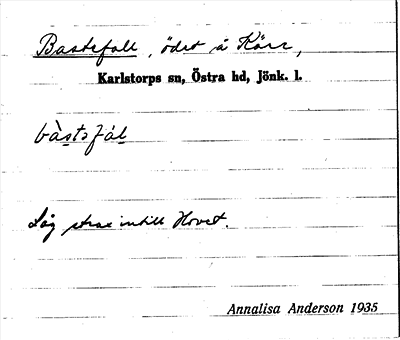 Bastefall, ödet å Kärr,
Karlstorps sn, Östra hd, Jönk. l.
bàstefál
Låg strax intill Hovet.
Annalisa Anderson 1935